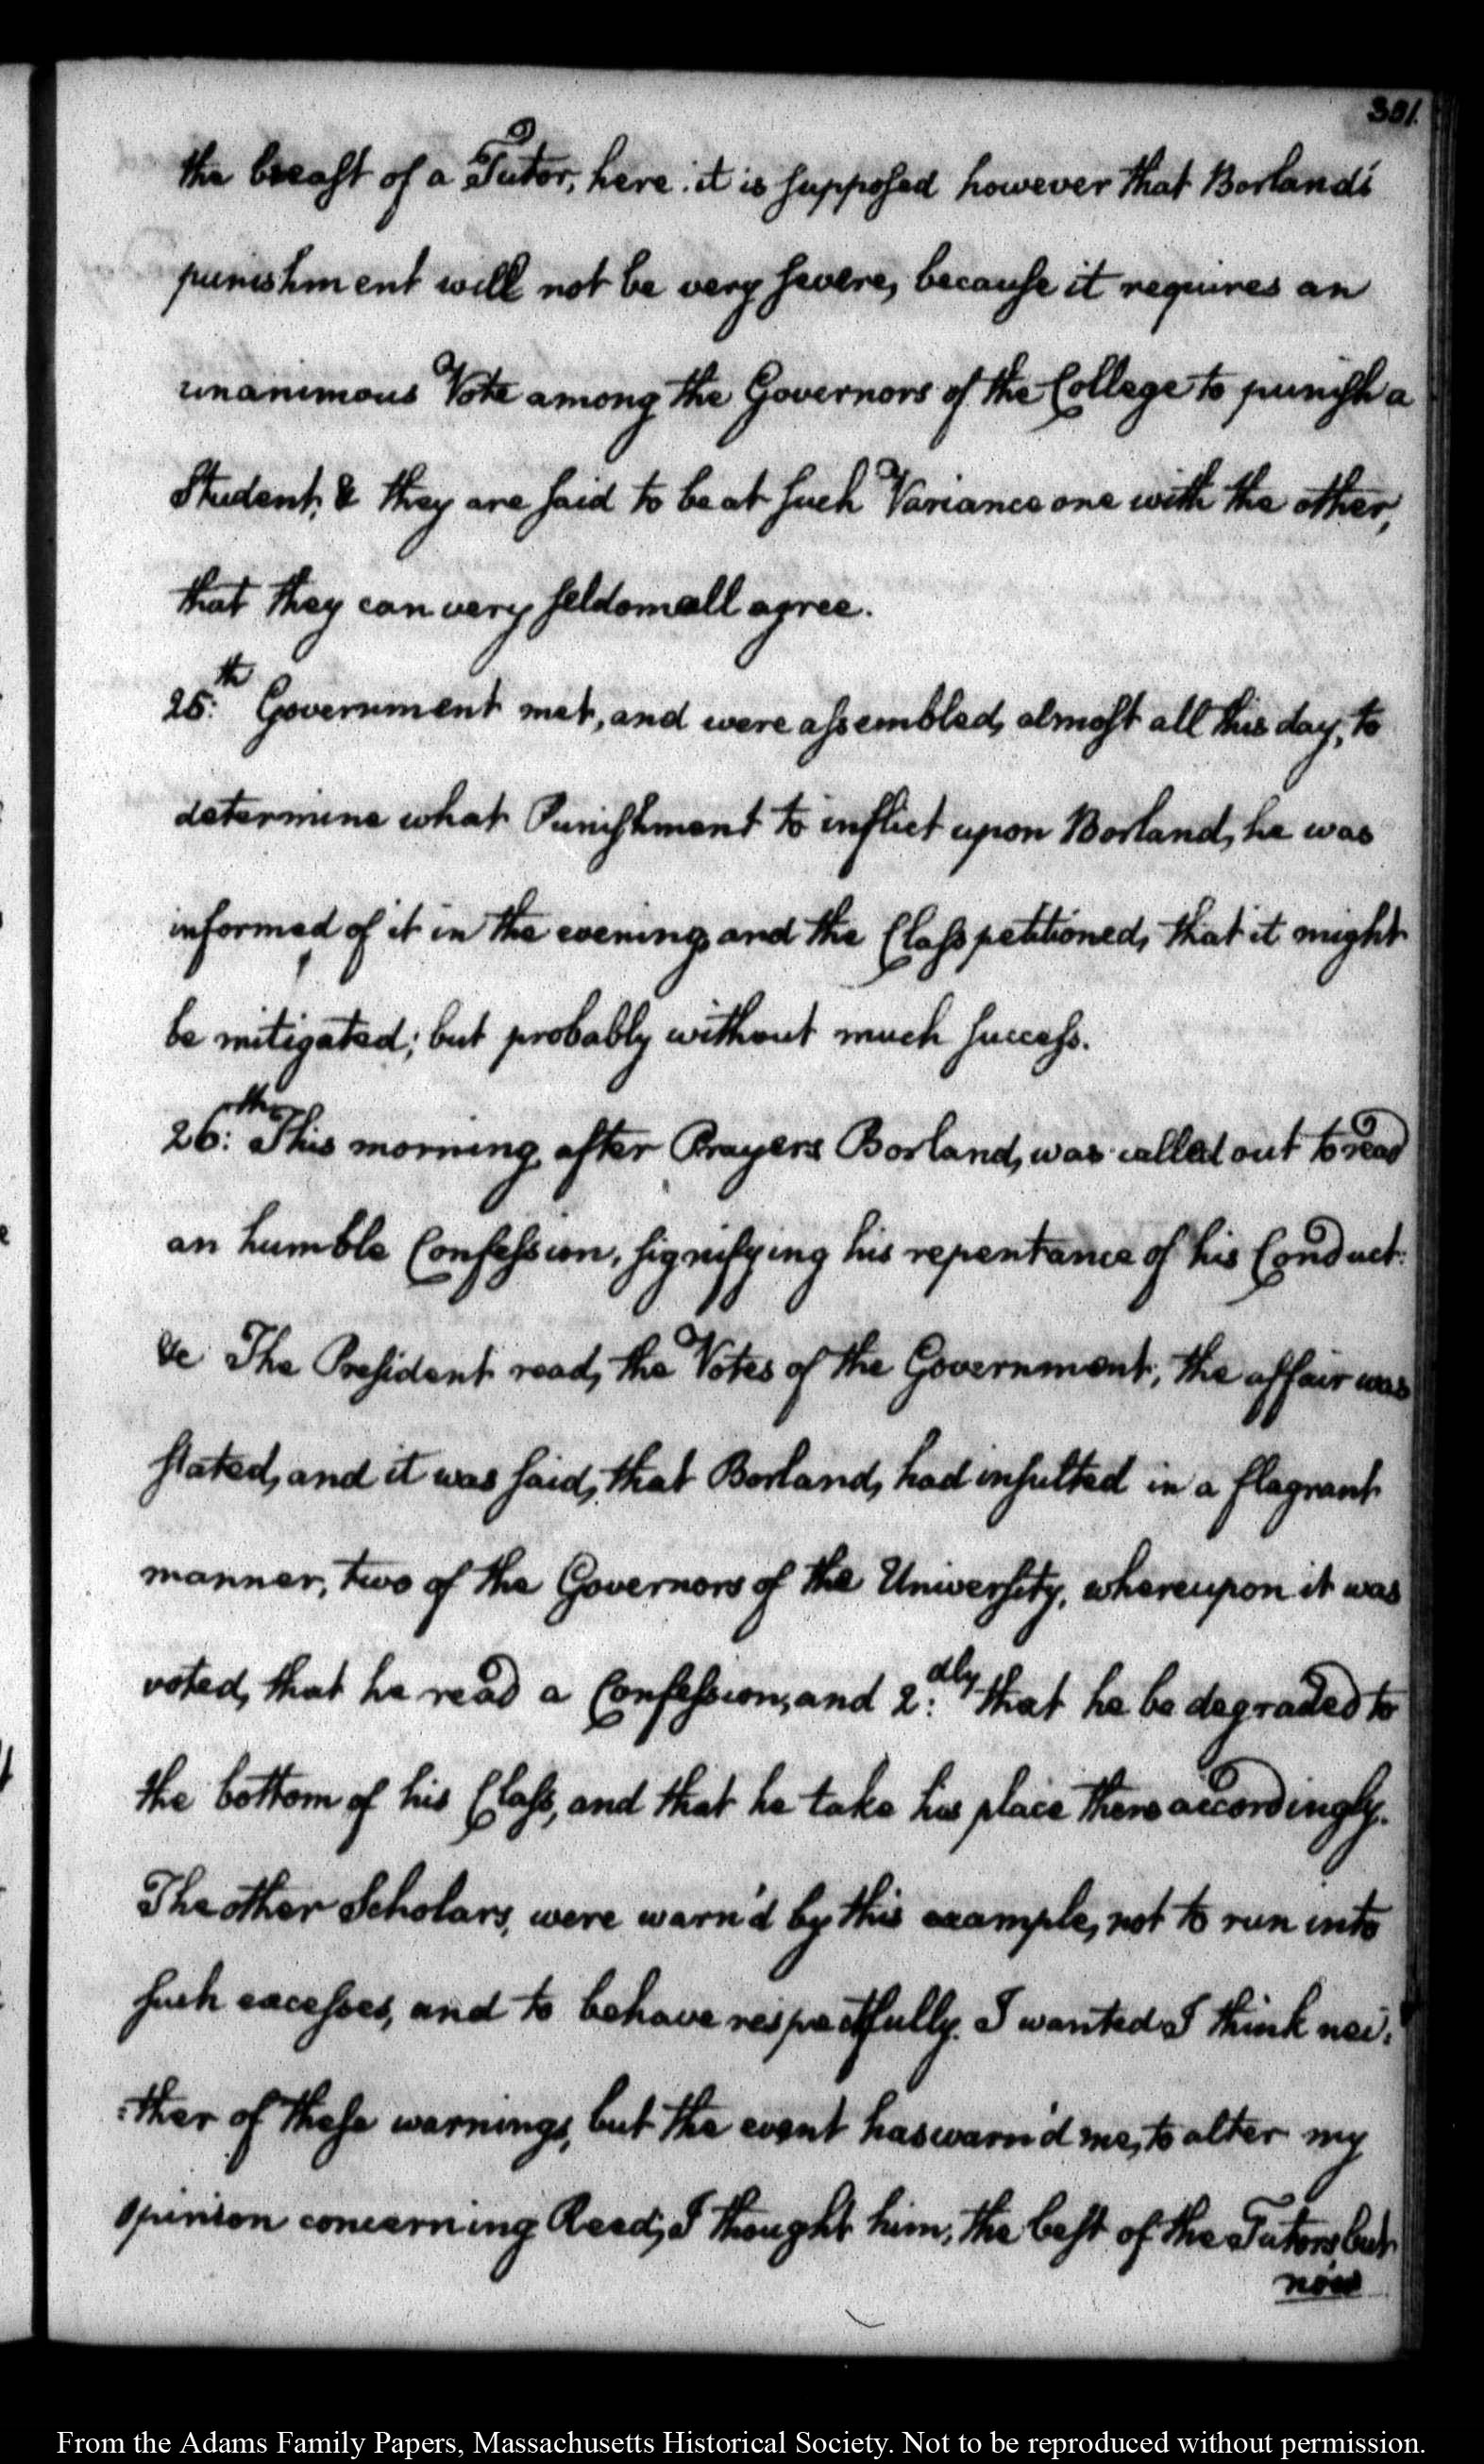 301.
the breast of a Tutor, here. it is supposed however that Borland's
punishment will not be very severe, because it requires an
unanimous Vote among the Governors of the College to punish a
Student, & they are said to be at such Variance one with the other,
that they can very seldom all agree.
25:th Government met, and were assembled, almost all this day, to
determine what Punishment to inflict upon Borland, he was
informed of it in the evening, and the Class petitioned, that it might
be mitigated; but probably without much success.
26:th This morning, after Prayers Borland, was called out to read
an humble Confession, signifying his repentance of his Conduct.
&c The President read, the Votes of the Government, the affair was
stated, and it was said, that Borland, had insulted in a flagrant
manner, two of the Governors of the University, whereupon it was
voted, that he read a Confession, and 2:dly that he be degraded to
the bottom of his Class, and that he take his place there accordingly.
The other Scholars, were warn'd by this example, not to run into
such excesses, and to behave respectfully. I wanted I think nei:
:ther of these warnings, but the event has warn'd me, to alter my
opinion concerning Read; I thought him, the best of the Tutors, but
now
From the Adams Family Papers, Massachusetts Historical Society. Not to be reproduced without permission.